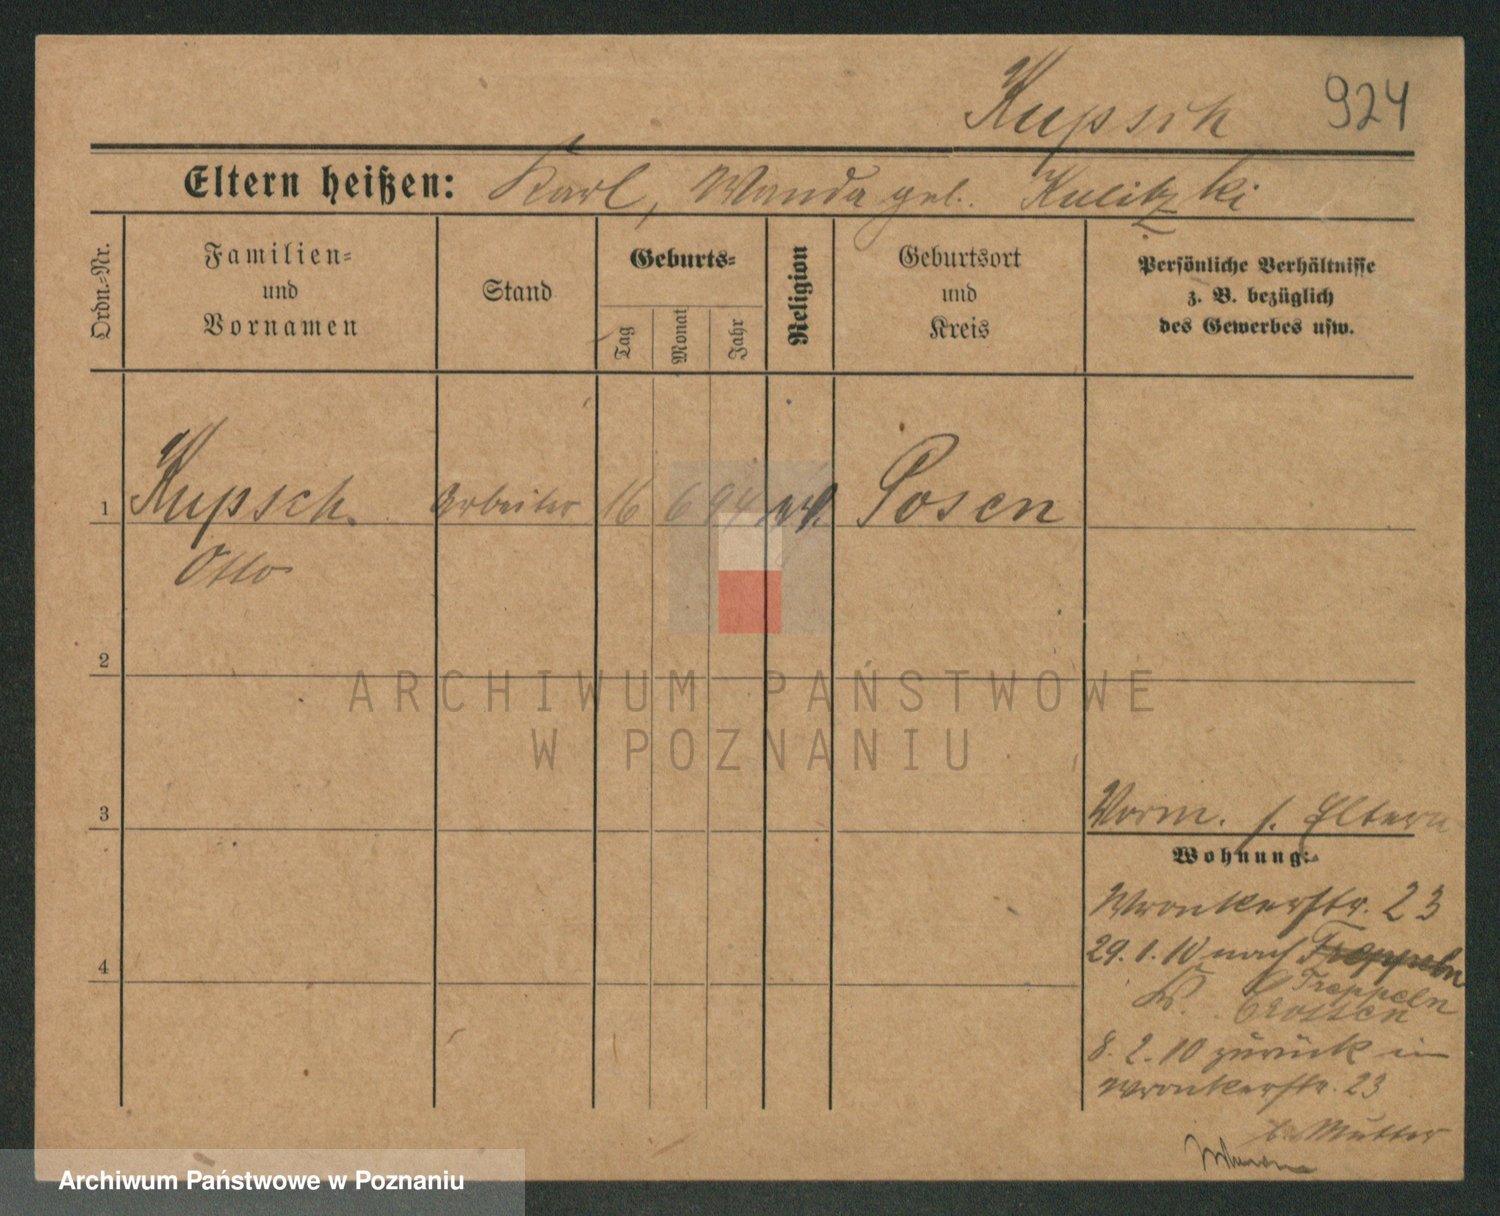 Kupsch 924
Eltern heißen: Karl, Wanda geb. Kulitzki
Ordn.-Nr.
Familien-
und
Vornamen
Stand
Geburts-
Tag
Monat
Jahr
Religion
Geburtsort
und
Kreis
Persönliche Verhältnisse
z. B. bezüglich
des Gewerbes usw.
1 Kupsch Arbeiter 16 6 94 Posen
Otto
2
ARCHIWUM PAŃSTWOWE
W POZNANIU
3
Vorm. s. Eltern
Wohnung:
Wronkerstr. 23
4
29.1.10 nach Treppeln
Treppeln
Kr. Crossen
8.2.10 zurück in
Wronkerstr. 23
b. Mutter
Archiwum Państwowe w Poznaniu